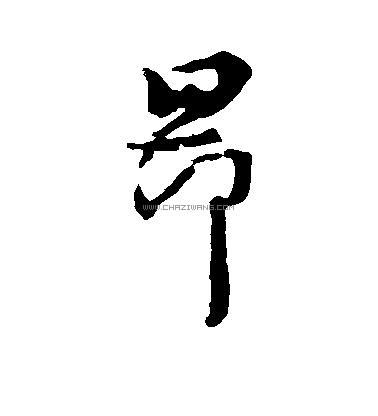 昂
WWW.CHAZIWANG.COM